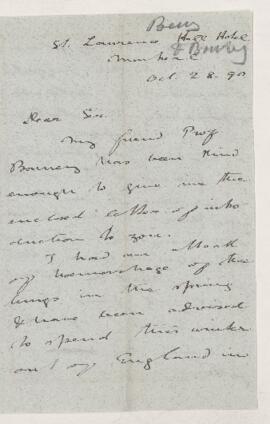 Benn
& Bonney
St. Lawrence Hall Hotel
Montreal
Oct 28. 90
Dear Sir.
My friend Prof
Bonney has been kind
enough to give me the
enclosed letter of intro
duction to you.
I had an attack
of haemorrhage of the
lungs in the spring
& have been advised
to spend this winter
out of England in